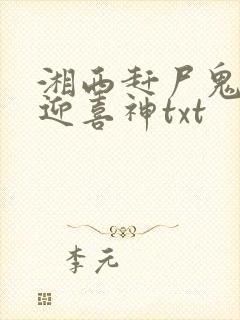 湘西赶尸鬼
迎喜神txt
李元